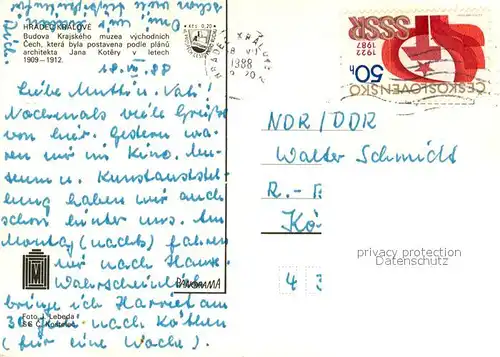 HRADEC KRÁLOVÉ
Budova Krajského muzea východních
Čech, která byla postavena podle plánů
architekta Jana Kotěry v letech
1909–1912.
18. VII. 88
Liebe Mutti u. Vati!
Nochmals viele Grüße
von hier. Gestern wa-
ren wir im Kino. Mu-
seum u. Kunstausstel-
lung haben wir auch
schon hinter uns. Am
Montag (nachts) fahren
wir nach Hause.
Wahrscheinlich
bringe ich Harriet am
30. nach Köthen
(für eine Woche).
Foto J. Lebeda
PANORAMA
1988
ČESKOSLOVENSKO
50h
SSSR
1922
1987
NDR/DDR
Walter Schmidt
R.-
Kö
4 3
privacy protection
Datenschutz